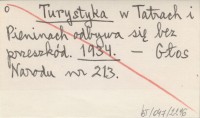 o Turystyka w Tatrach i
Pieninach odbywa się bez
przeszkód. 1934. — Głos
Narodu nr 213.